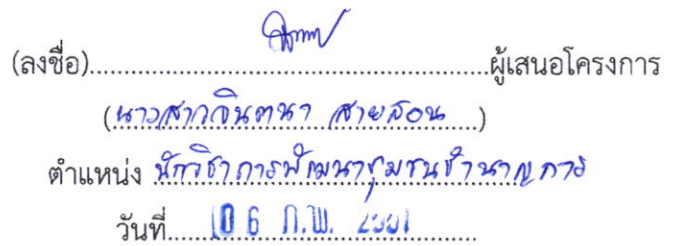 (ลงชื่อ)..................................................ผู้เสนอโครงการ
(นางสาวจินตนา สายสอน)
ตำแหน่ง นักวิชาการพัฒนาชุมชนชำนาญการ
วันที่ 06 ก.พ. 2561